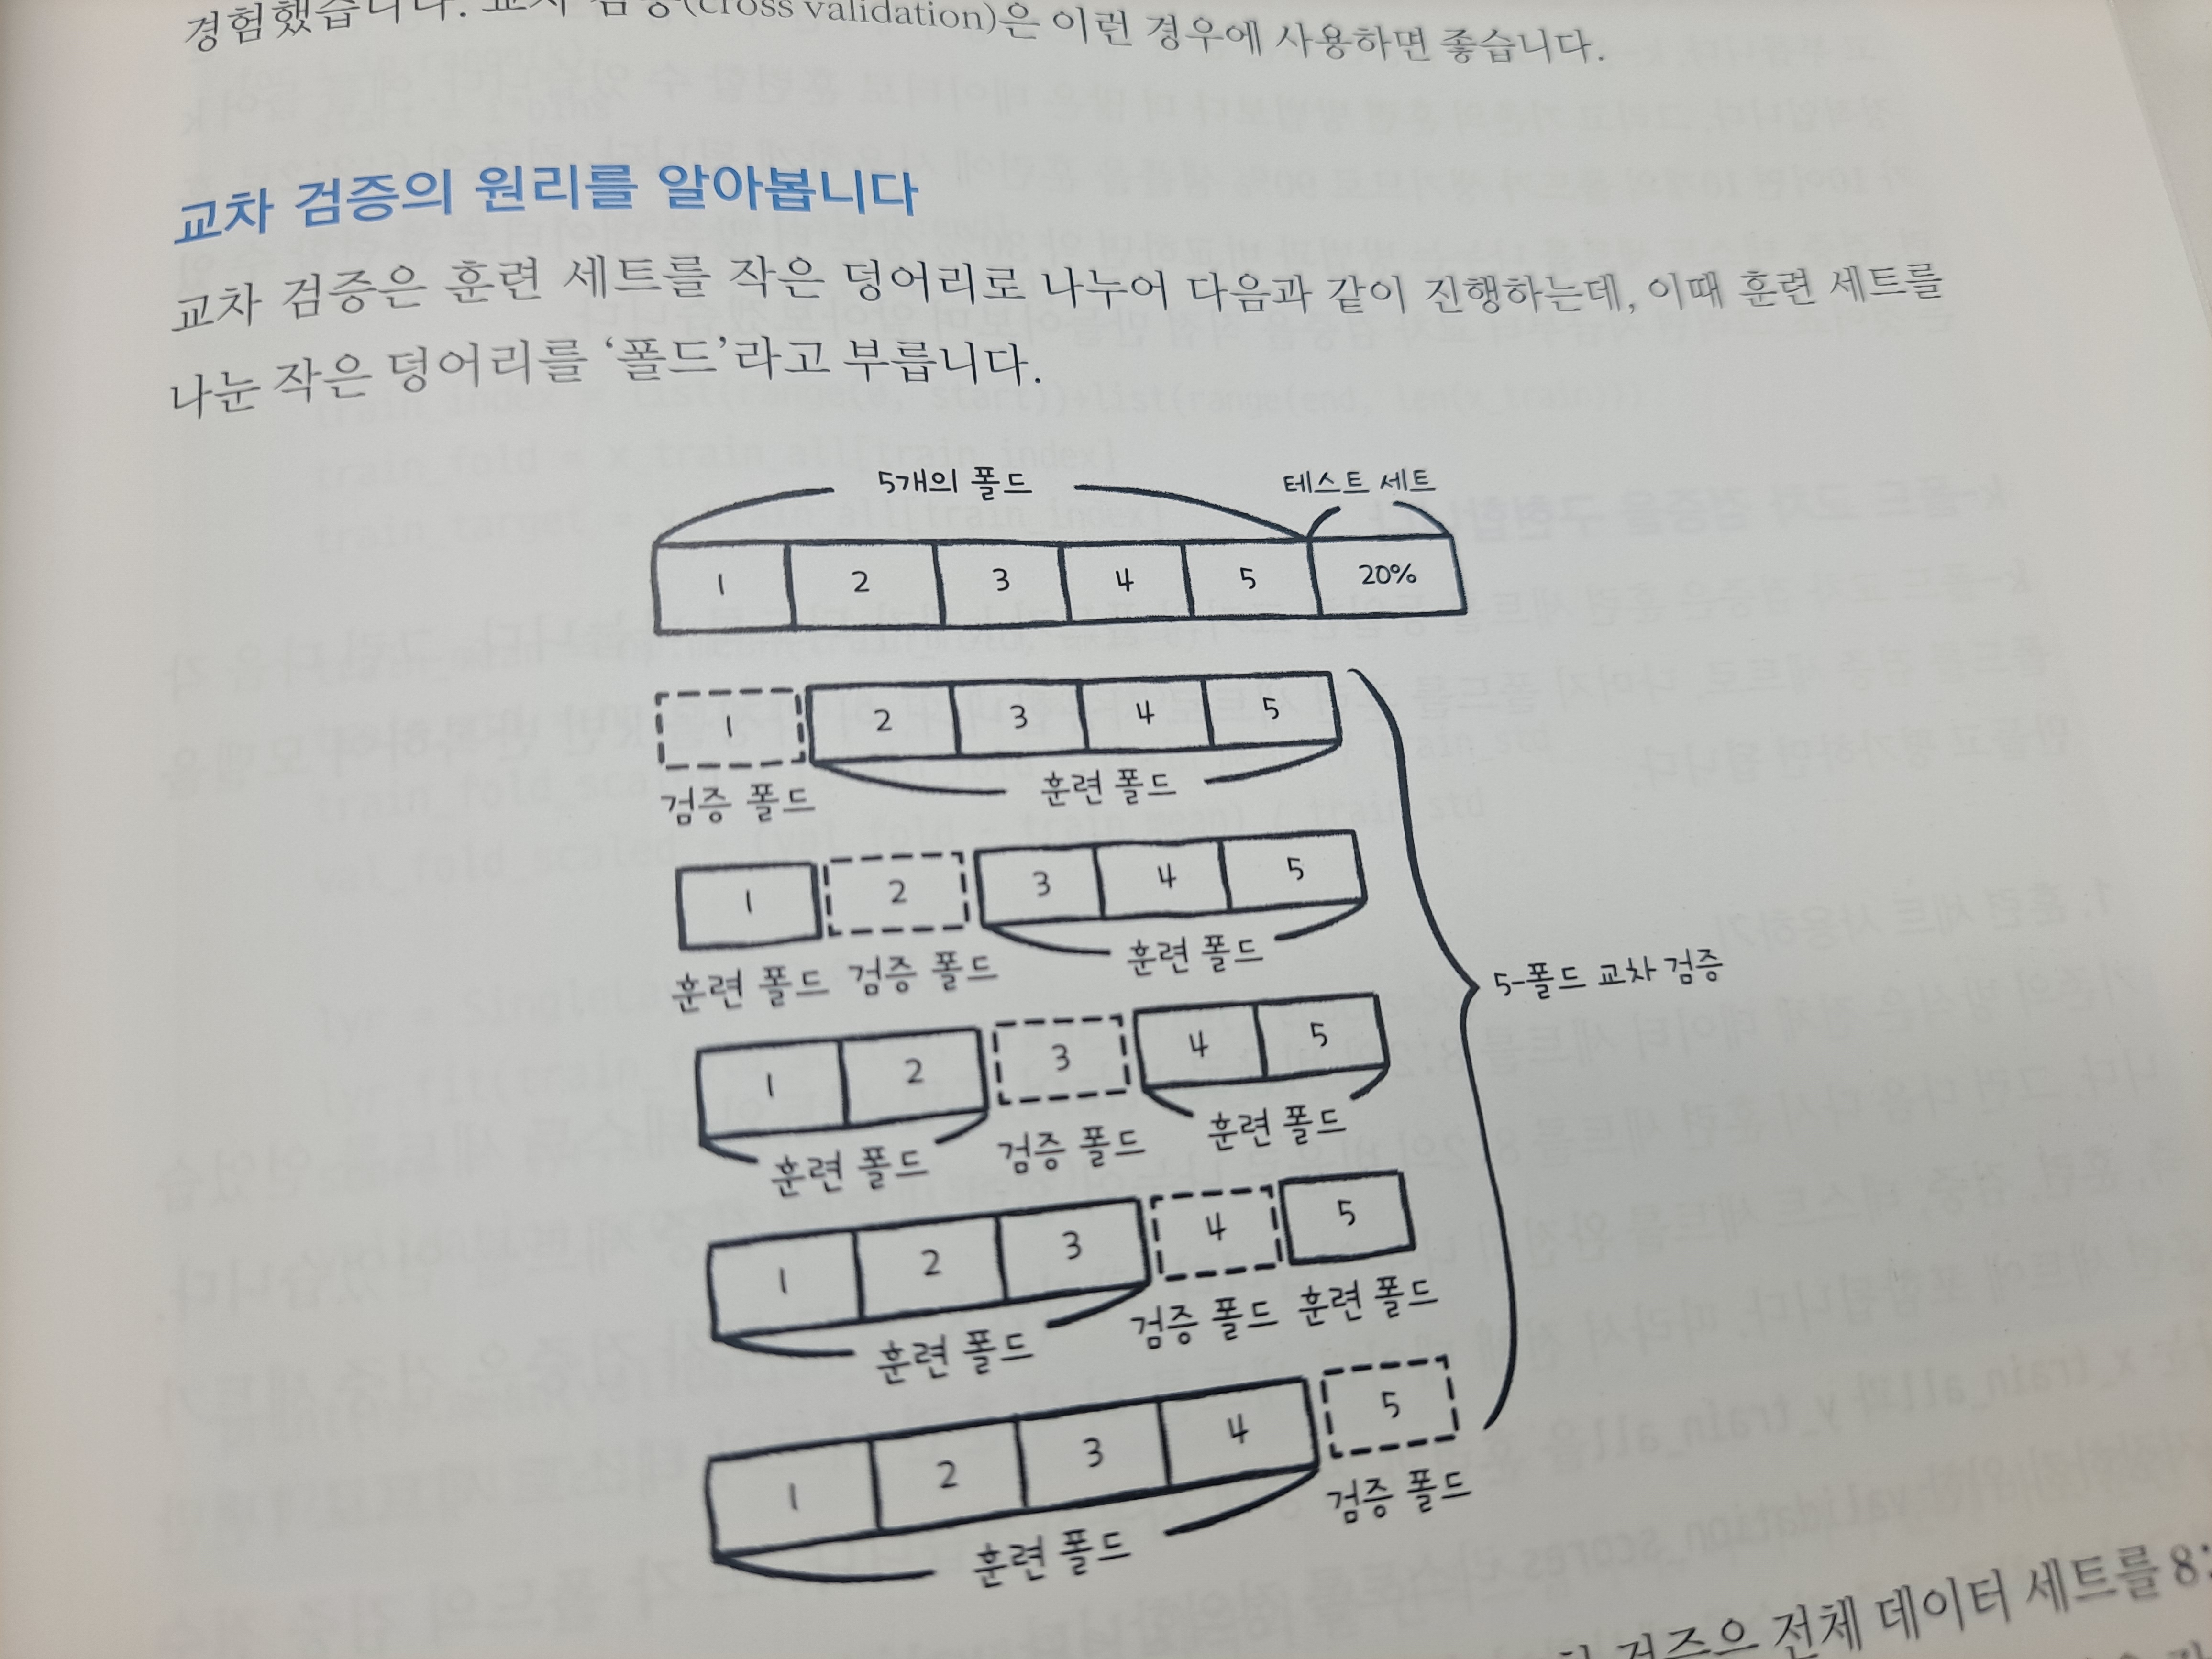 경험했습니다. 교차 검증(cross validation)은 이런 경우에 사용하면 좋습니다.
교차 검증의 원리를 알아봅니다
교차 검증은 훈련 세트를 작은 덩어리로 나누어 다음과 같이 진행하는데, 이때 훈련 세트를
나눈 작은 덩어리를 ‘폴드’라고 부릅니다.
5개의 폴드 테스트 세트
1 2 3 4 5 20%
1 2 3 4 5
검증 폴드 훈련 폴드
1 2 3 4 5
훈련 폴드 검증 폴드 훈련 폴드
5-폴드 교차 검증
1 2 3 4 5
훈련 폴드 검증 폴드 훈련 폴드
1 2 3 4 5
훈련 폴드 검증 폴드 훈련 폴드
1 2 3 4 5
훈련 폴드 검증 폴드
전체 데이터 세트를 8: